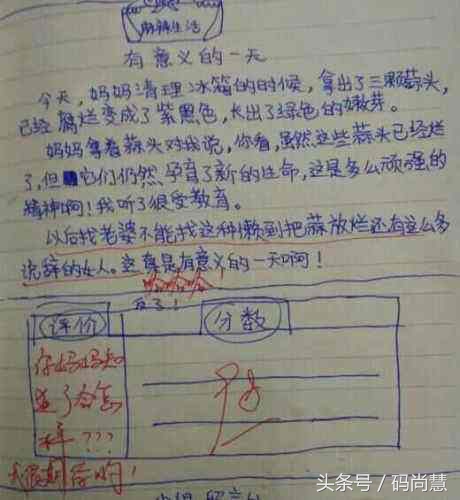 麻辣生活
有意义的一天
今天,妈妈清理冰箱的的时候,拿出了三颗蒜头,
已经腐烂变成了紫黑色,长出了绿色的嫩芽。
妈妈拿着蒜头对我说,你看,虽然这些蒜头已经烂
了,但它们仍然孕育了新的生命,这是多么顽强的
精神啊!我听了很受教育。
以后找老婆不能找这种懒到把蒜放烂还有这么多
说辞的女人。这真是有意义的一天啊!
哈哈哈
反了!
评价
分数
你妈妈知
道了会怎
样???
优
头条号/码尚慧